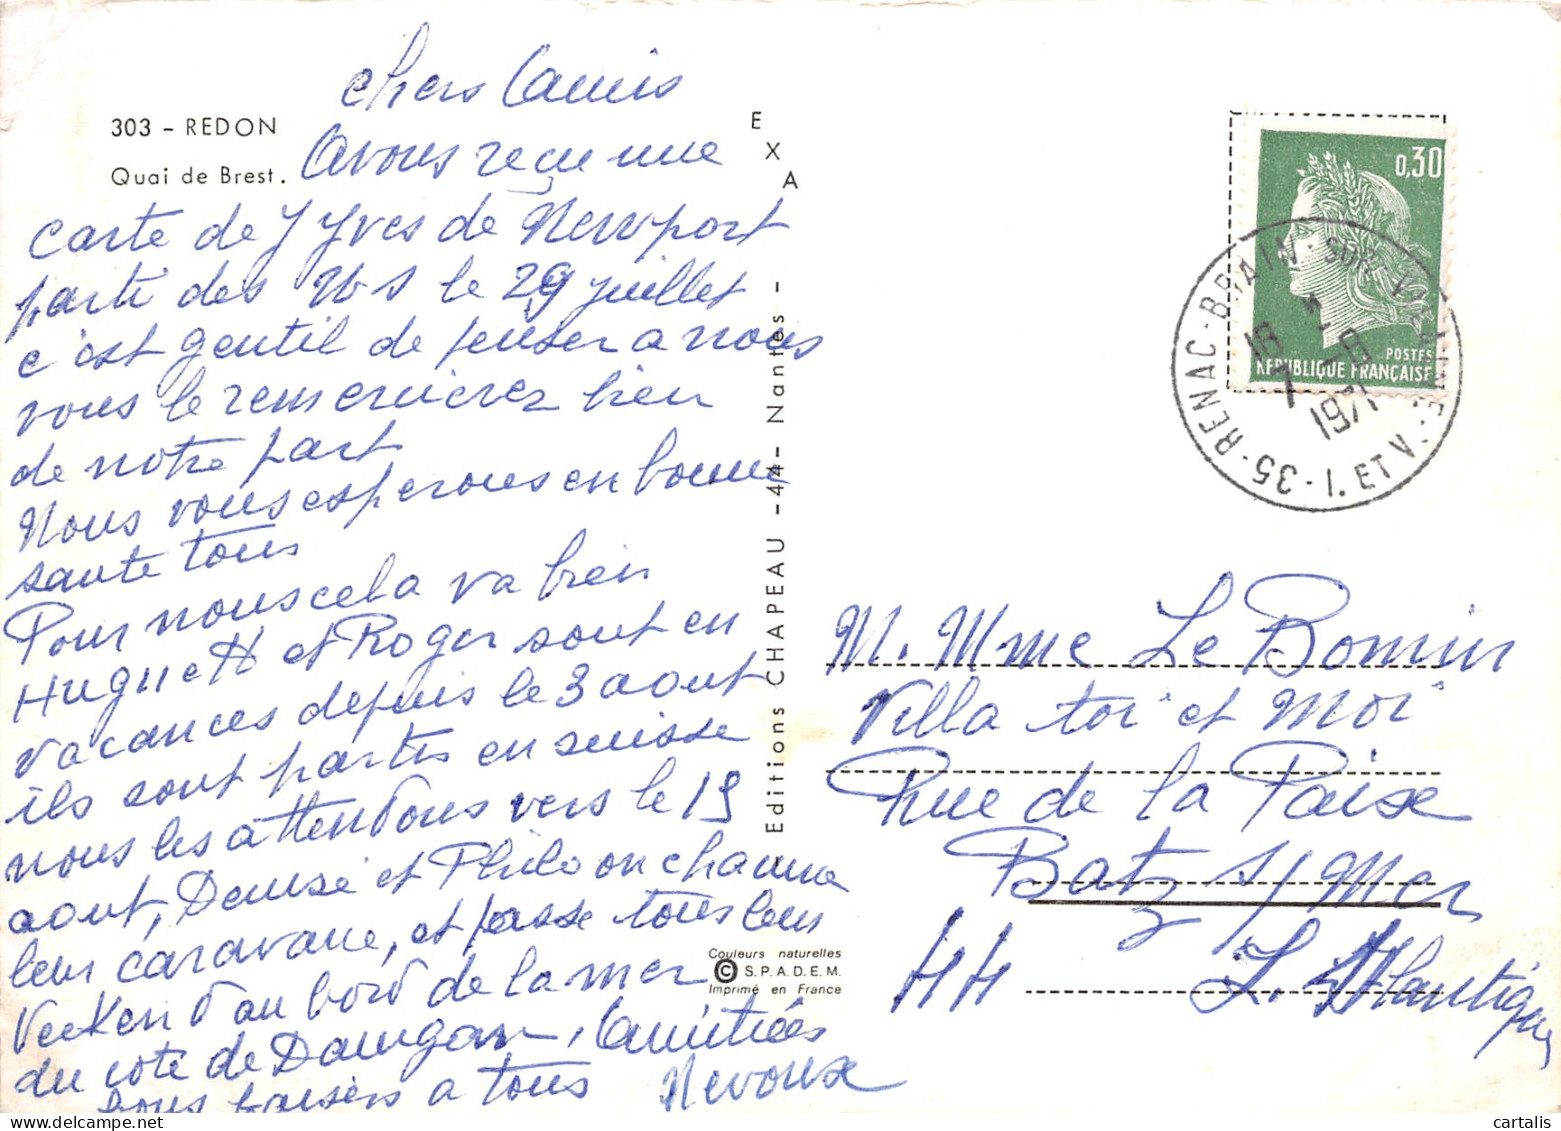 303 - REDON
Quai de Brest.
chers Camis
Avons reçu une
carte de J Yves de Newport
parti des Us le 29 juillet
c'est gentil de penser a nous
vous le remercierez bien
de notre part
Nous vous esperons en bonne
sante tous
Pour nous cela va bien
Huguett et Roger sont en
vacances depuis le 3 aout
ils sont partis en suisse
nous les attendons vers le 19
aout, Denise et Philo on chacune
leur caravane, et passe tous leur
veekend au bord de la mer
du coté de Damgan, Camitiés
bons baisers a tous Nevoux
E X A
Editions CHAPEAU - 44 - Nantes -
Couleurs naturelles
© S.P.A.D.E.M.
Imprimé en France
0,30
POSTES
REPUBLIQUE FRANÇAISE
35 - RENAC - BRAIN - SUR - VILAINE - I. ET V.
18 H
7 - 8
1971
M. Mme Le Bomin
Villa "toi et Moi"
Rue de la Paix
Batz s/Mer
44 L. Atlantique